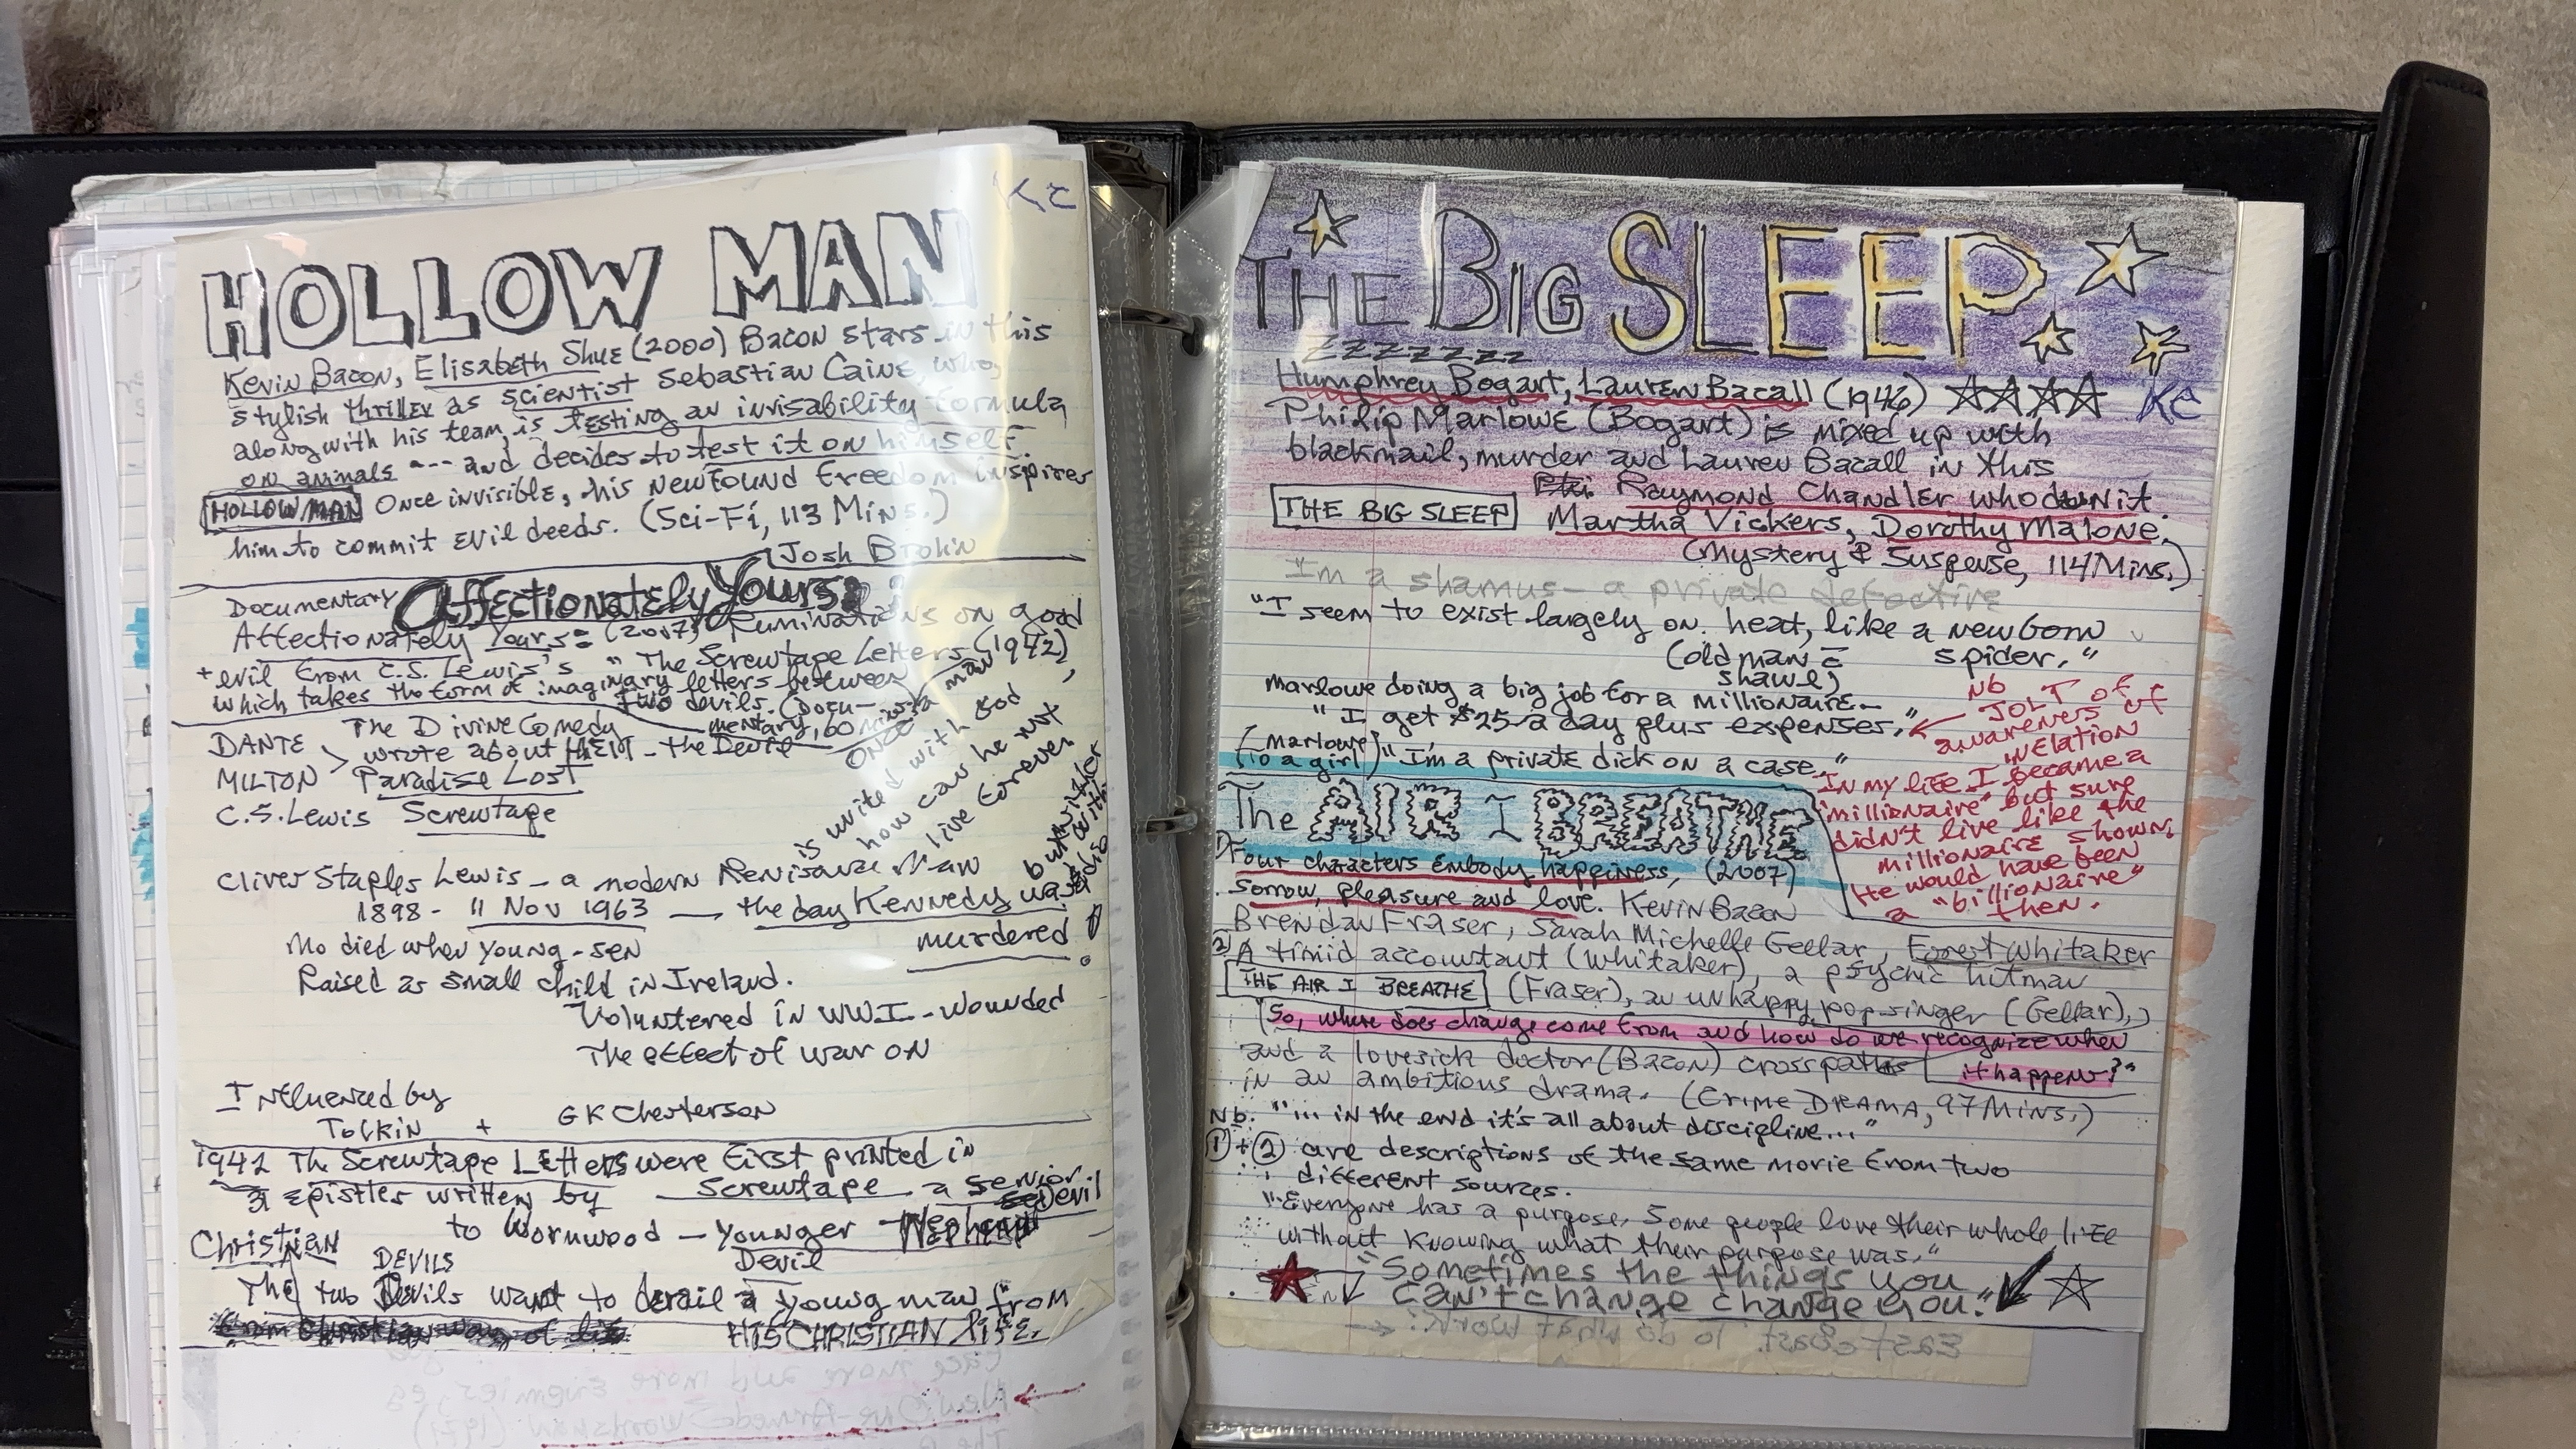 Kc
HOLLOW MAN
Kevin Bacon, Elisabeth Shue (2000) Bacon stars in this
stylish thriller as scientist Sebastian Caine, who,
along with his team, is testing an invisability formula
on animals --- and decides to test it on himself.
HOLLOW MAN Once invisible, his newfound freedom inspires
him to commit evil deeds. (Sci-Fi, 113 Mins.)
Josh Brolin
Documentary Affectionately Yours:
Affectionately Yours: (2007) Ruminations on good
+ evil from C.S. Lewis's "The Screwtape Letters (1942)
which takes the form of imaginary letters between
two devils. (Docu-
mentary, 60 Mins.)
DANTE The Divine Comedy
wrote about HEM - the Devil
MILTON > Paradise Lost
C.S. Lewis Screwtape
Once a man
is united with God
how can he not
live forever
but wither
Cliver Staples Lewis - a modern Renisance Man
1898 - 11 Nov 1963 — the day Kennedy was
murdered!
Mo died when young - sen
Raised as small child in Ireland.
Voluntered in WWI - wounded
The effect of war on
Influenced by
Tolkin + GK Chesterson
1942 The Screwtape Letters were first printed in
31 epistles written by Screwtape - a senior
Devil
to Wornwood - younger
Devil
Christian
DEVILS
The two Devils want to derail a young man from
HIS CHRISTIAN life.
THE BIG SLEEP
ZZZZZZZ
Humphrey Bogart, Lauren Bacall (1946) ☆☆☆☆ Kc
Philip Marlowe (Bogart) is mixed up with
blackmail, murder and Lauren Bacall in this
Raymond Chandler whodunit.
THE BIG SLEEP Martha Vickers, Dorothy Malone.
(Mystery & Suspense, 114 Mins.)
I'm a shamus - a private detective
"I seem to exist largely on heat, like a newborn
spider."
(old man =
shawl)
Marlowe doing a big job for a millionaire -
"I get $25 a day plus expenses."
(Marlowe
to a girl) "I'm a private dick on a case."
Nb
JOLT of
awareness of
In my life I became a
"millionaire" but sure
didn't live like the
millionaire shown.
He would have been
a "billionaire"
then.
The AIR I BREATHE
1) Four characters embody happiness, (2007)
sorrow, pleasure and love. Kevin Bacon
Brendan Fraser, Sarah Michelle Gellar, Forest Whitaker
2) A timid accountant (Whitaker), a psychic hitman
THE AIR I BREATHE (Fraser), an unhappy pop singer (Gellar),
"So, where does change come from and how do we recognize when
it happens?"
and a lovesick doctor (Bacon) cross paths
in an ambitious drama. (Crime DRAMA, 97 Mins.)
Nb. "... in the end it's all about discipline..."
① + ② are descriptions of the same movie from two
different sources.
"Everyone has a purpose. Some people love their whole life
without knowing what their purpose was."
"Sometimes the things you
can't change change you."